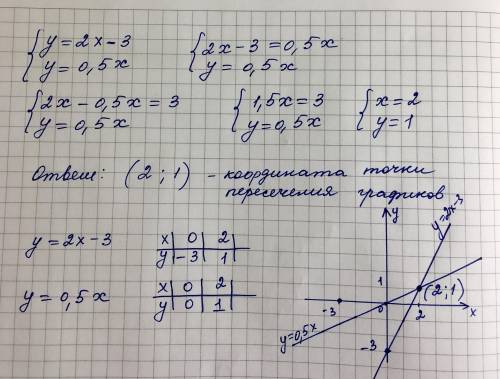 { y = 2x - 3
{ y = 0,5x
{ 2x - 3 = 0,5x
{ y = 0,5x
{ 2x - 0,5x = 3
{ y = 0,5x
{ 1,5x = 3
{ y = 0,5x
{ x = 2
{ y = 1
Ответ: (2 ; 1) - координата точки
пересечения графиков
y = 2x - 3
x | 0 | 2
y | -3 | 1
y = 0,5x
x | 0 | 2
y | 0 | 1
y
y=2x-3
1
(2;1)
-3
0
2
x
y=0,5x
-3